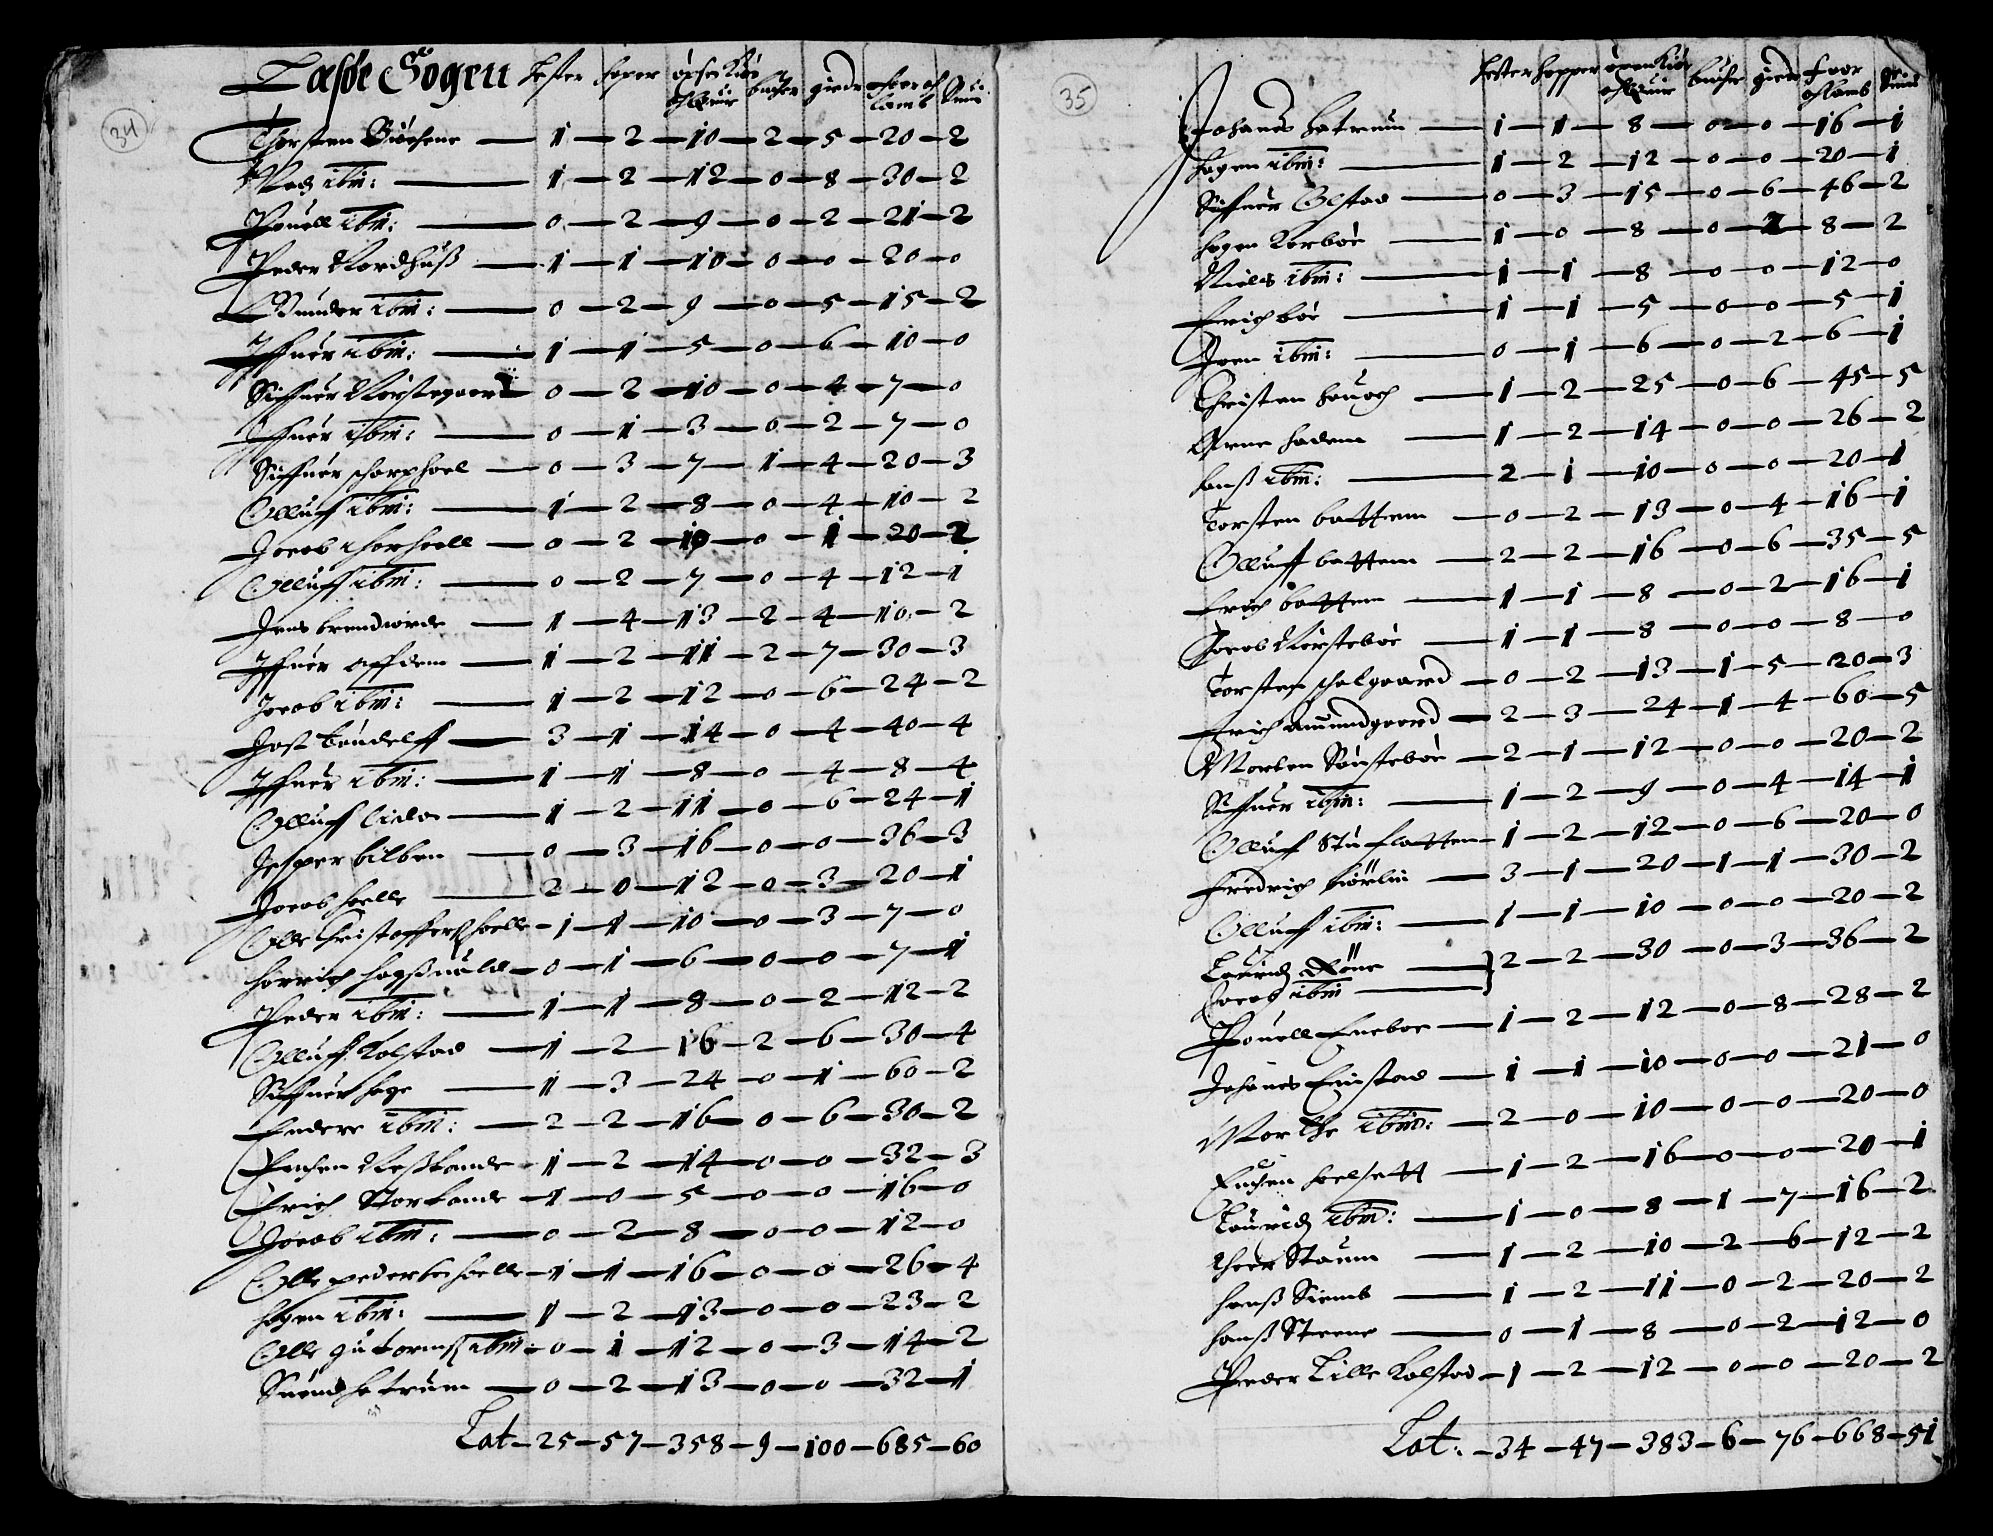 34
Tæsøe Sogen Hester hoper øxser Kiør och Queur bucher gieder faar och lamb Suin
Thorsten Büehene — 1 — 2 — 10 — 2 — 5 — 20 — 2
ibm: — 1 — 2 — 12 — 0 — 8 — 30 — 2
Pouell ibm: — 0 — 2 — 9 — 0 — 2 — 21 — 2
Peder Nordhuß — 1 — 1 — 10 — 0 — 0 — 20 — 0
Gunder ibm: — 0 — 2 — 9 — 0 — 5 — 15 — 2
Iffuer ibm: — 1 — 1 — 5 — 0 — 6 — 10 — 0
Siffuer Nørstegaard — 0 — 2 — 10 — 0 — 4 — 7 — 0
Iffuer ibm: — 0 — 1 — 3 — 0 — 2 — 7 — 0
Siffuer scharphoel — 0 — 3 — 7 — 1 — 4 — 20 — 3
Olluff ibm: — 1 — 2 — 8 — 0 — 4 — 10 — 2
Jacob horhoell — 0 — 2 — 10 — 0 — 1 — 20 — 2
Olluff ibm: — 0 — 2 — 7 — 0 — 4 — 12 — 1
Jens brendiorde — 1 — 4 — 13 — 2 — 4 — 10 — 2
Iffuer affdem — 1 — 2 — 11 — 2 — 7 — 30 — 3
Jacob ibm: — 1 — 2 — 12 — 0 — 6 — 24 — 2
Jost — 3 — 1 — 14 — 0 — 4 — 40 — 4
Iffuer ibm: — 1 — 1 — 8 — 0 — 4 — 8 — 4
Olluff — 1 — 2 — 11 — 0 — 6 — 24 — 1
Jesper bilben — 0 — 3 — 16 — 0 — 0 — 36 — 3
Jacob holle — 2 — 0 — 12 — 0 — 3 — 20 — 1
Olle Christoffers holle — 1 — 1 — 10 — 0 — 3 — 7 — 0
— 0 — 1 — 6 — 0 — 0 — 7 — 1
Peder ibm: — 1 — 1 — 8 — 0 — 2 — 12 — 2
Olluff Kolstad — 1 — 2 — 16 — 2 — 6 — 30 — 4
Siffuer hage — 1 — 3 — 24 — 0 — 1 — 60 — 2
Endere ibm: — 2 — 2 — 16 — 0 — 6 — 30 — 2
— 1 — 2 — 14 — 0 — 0 — 32 — 3
Erich Storlande — 1 — 0 — 5 — 0 — 0 — 16 — 0
Jacob ibm: — 0 — 2 — 8 — 0 — 0 — 12 — 0
Olle peders holle — 1 — 1 — 16 — 0 — 0 — 26 — 4
hogen ibm: — 1 — 2 — 13 — 0 — 0 — 23 — 2
Olle gutormß ibm: — 0 — 1 — 12 — 0 — 3 — 14 — 2
Suend hatrum — 0 — 2 — 13 — 0 — 0 — 32 — 1
Lat — 25 — 57 — 358 — 9 — 100 — 685 — 60
35
hester hopper øxen Kiør och Queur bucher gieder faar och lamb Suin
Johanes hatrum — 1 — 1 — 8 — 0 — 0 — 16 — 1
hogen ibm: — 1 — 2 — 12 — 0 — 0 — 20 — 1
Siffuer Olstad — 0 — 3 — 15 — 0 — 6 — 46 — 2
hogen Korboe — 1 — 0 — 8 — 0 — 2 — 8 — 2
Niels ibm: — 1 — 1 — 8 — 0 — 0 — 12 — 0
Erich bøe — 1 — 1 — 5 — 0 — 0 — 5 — 1
Joen ibm: — 0 — 1 — 6 — 0 — 2 — 6 — 1
Christen — 1 — 2 — 25 — 0 — 6 — 45 — 5
Arne hadem — 1 — 2 — 14 — 0 — 0 — 26 — 2
hanß ibm: — 2 — 1 — 10 — 0 — 0 — 20 — 1
Torsten battem — 0 — 2 — 13 — 0 — 4 — 16 — 1
Olluff battem — 2 — 2 — 16 — 0 — 6 — 35 — 5
Erich battem — 1 — 1 — 8 — 0 — 2 — 16 — 1
Jacob Nørstebøe — 1 — 1 — 8 — 0 — 0 — 8 — 0
Torsten schalgaard — 0 — 2 — 13 — 1 — 5 — 20 — 3
Erich amundgaard — 2 — 3 — 24 — 1 — 4 — 60 — 5
Morten Sønstebøe — 2 — 1 — 12 — 0 — 0 — 20 — 2
Siffuer ibm: — 1 — 2 — 9 — 0 — 4 — 14 — 1
Olluff Stuflatten — 1 — 2 — 12 — 0 — 6 — 20 — 0
Fredrich Kiørlin — 3 — 1 — 20 — 1 — 1 — 30 — 2
Olluff ibm: — 1 — 1 — 10 — 0 — 0 — 20 — 2
Lauridz Røne — 2 — 2 — 30 — 0 — 3 — 36 — 2
Jacob ibm —
Pouell Eneboe — 1 — 2 — 12 — 0 — 8 — 28 — 2
Johanes Einstad — 1 — 1 — 10 — 0 — 0 — 21 — 0
Marthe ibm: — 2 — 0 — 10 — 0 — 0 — 20 — 0
hoelsett — 1 — 2 — 16 — 0 — 0 — 20 — 1
Lauridz ibm: — 1 — 0 — 8 — 1 — 7 — 16 — 2
Thoer Staum — 1 — 2 — 10 — 2 — 6 — 12 — 2
hanß Siemb — 1 — 2 — 11 — 0 — 2 — 20 — 2
hanß Steene — 0 — 1 — 8 — 0 — 2 — 12 — 0
Peder Lille Kolstad — 1 — 2 — 12 — 0 — 0 — 20 — 2
Lat: — 34 — 47 — 383 — 6 — 76 — 668 — 51